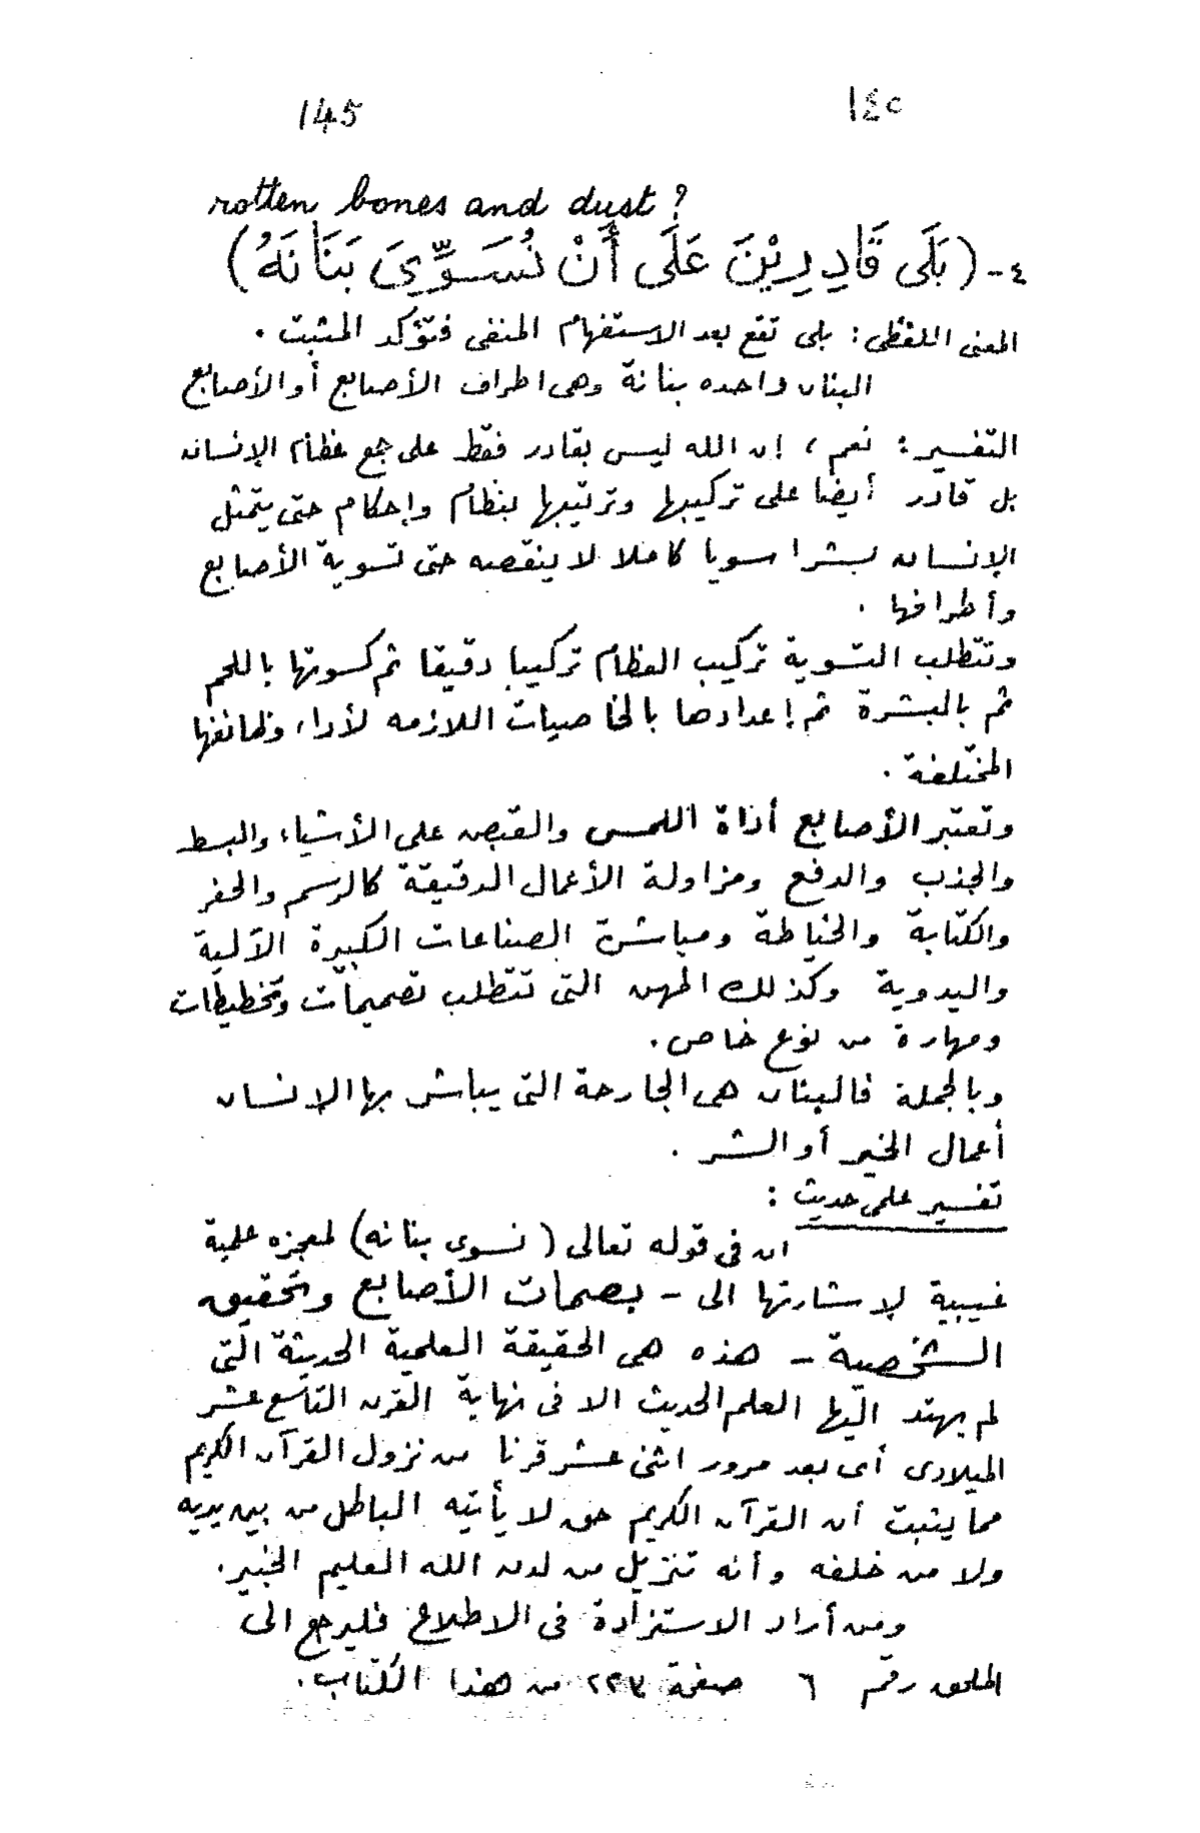 145 ١٤٥
rotten bones and dust?
٤- (بَلَى قَادِرِيْنَ عَلَى أَنْ نُسَوِّيَ بَنَانَهُ)
المعنى اللفظى: بلى تقع بعد الاستفهام المنفى فتؤكد المثبت .
البنان واحده بنانة وهى اطراف الأصابع أو الأصابع
التفسير: نعم ، إن الله ليس بقادر فقط على جمع عظام الإنسان
بل قادر أيضا على تركيبها وترتيبها بنظام وإحكام حتى يتمثل
الإنسان بشرا سويا كاملا لا ينقصه حتى تسوية الأصابع
وأطرافها .
وتتطلب التسوية تركيب العظام تركيبا دقيقا ثم كسوتها باللحم
ثم بالبشرة ثم إعدادها بالخاصيات اللازمه لأداء وظائفها
المختلفة .
وتعتبر الأصابع أداة اللمس والقبض على الأشياء والبسط
والجذب والدفع ومزاولة الأعمال الدقيقة كالرسم والحفر
والكتابة والخياطة ومباشرة الصناعات الكبيرة الآلية
واليدوية وكذلك المهن التى تتطلب تصميمات وتخطيطات
ومهارة من نوع خاص .
وبالجملة فالبنان هى الجارحة التى يباشر بها الانسان
أعمال الخير أو الشر .
تفسير علمى حديث :
ان فى قوله تعالى (نسوى بنانه) لمعجزه علمية
غيبية لإشارتها الى - بصمات الأصابع وتحقيق
الشخصية - هذه هى الحقيقة العلمية الحديثة التى
لم يهتد اليها العلم الحديث الا فى نهاية القرن التاسع عشر
الميلادى أى بعد مرور اثنى عشر قرنا من نزول القرآن الكريم
مما يثبت أن القرآن الكريم حق لا يأتيه الباطل من بين يديه
ولا من خلفه وأنه تنزيل من لدن الله العليم الخبير.
ومن أراد الاستزادة فى الاطلاع فليرجع الى
الملحق رقم ٦ صفحة ٢٢٧ من هذا الكتاب.